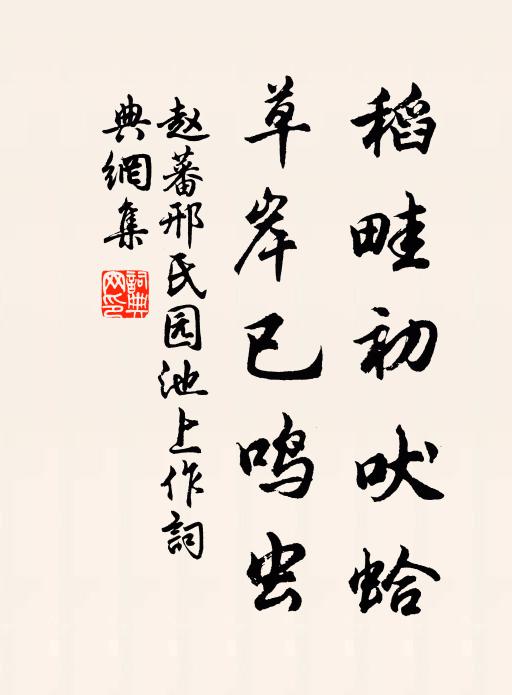 稻畦初吠蛤
草岸已鸣虫
赵蕃邢氏园池上作詞
典網集
詞典網印